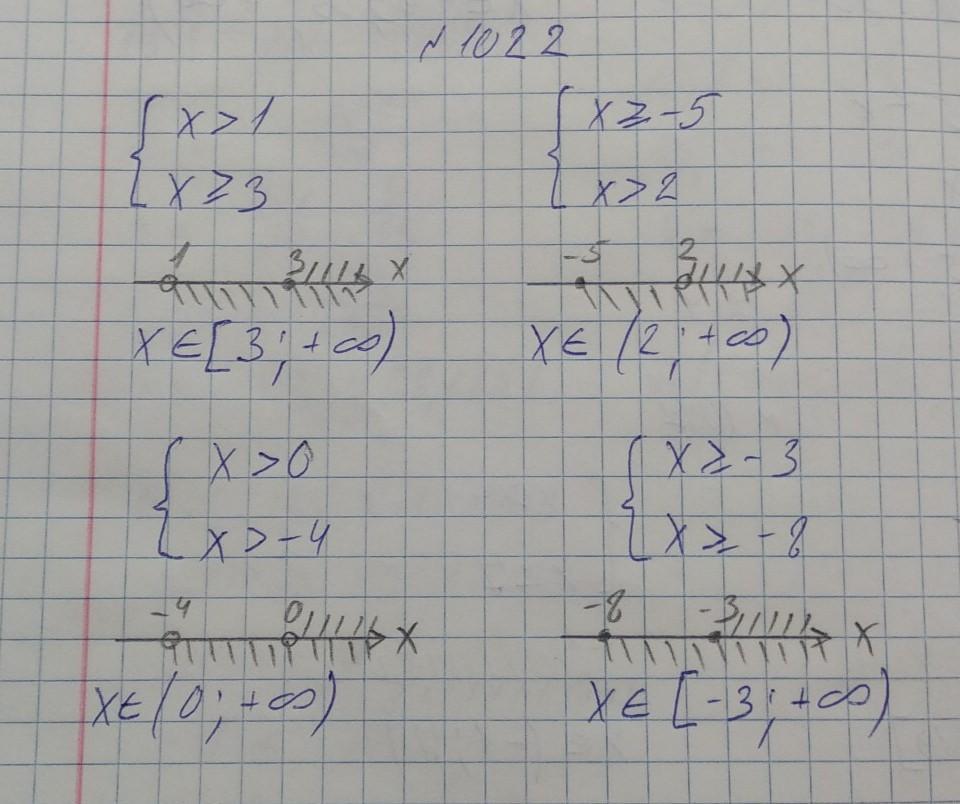 №1022
x > 1
x ≥ 3
1 3 x
x ∈ [3; +∞)
x ≥ -5
x > 2
-5 2 x
x ∈ (2; +∞)
x > 0
x > -4
-4 0 x
x ∈ (0; +∞)
x ≥ -3
x ≥ -8
-8 -3 x
x ∈ [-3; +∞)